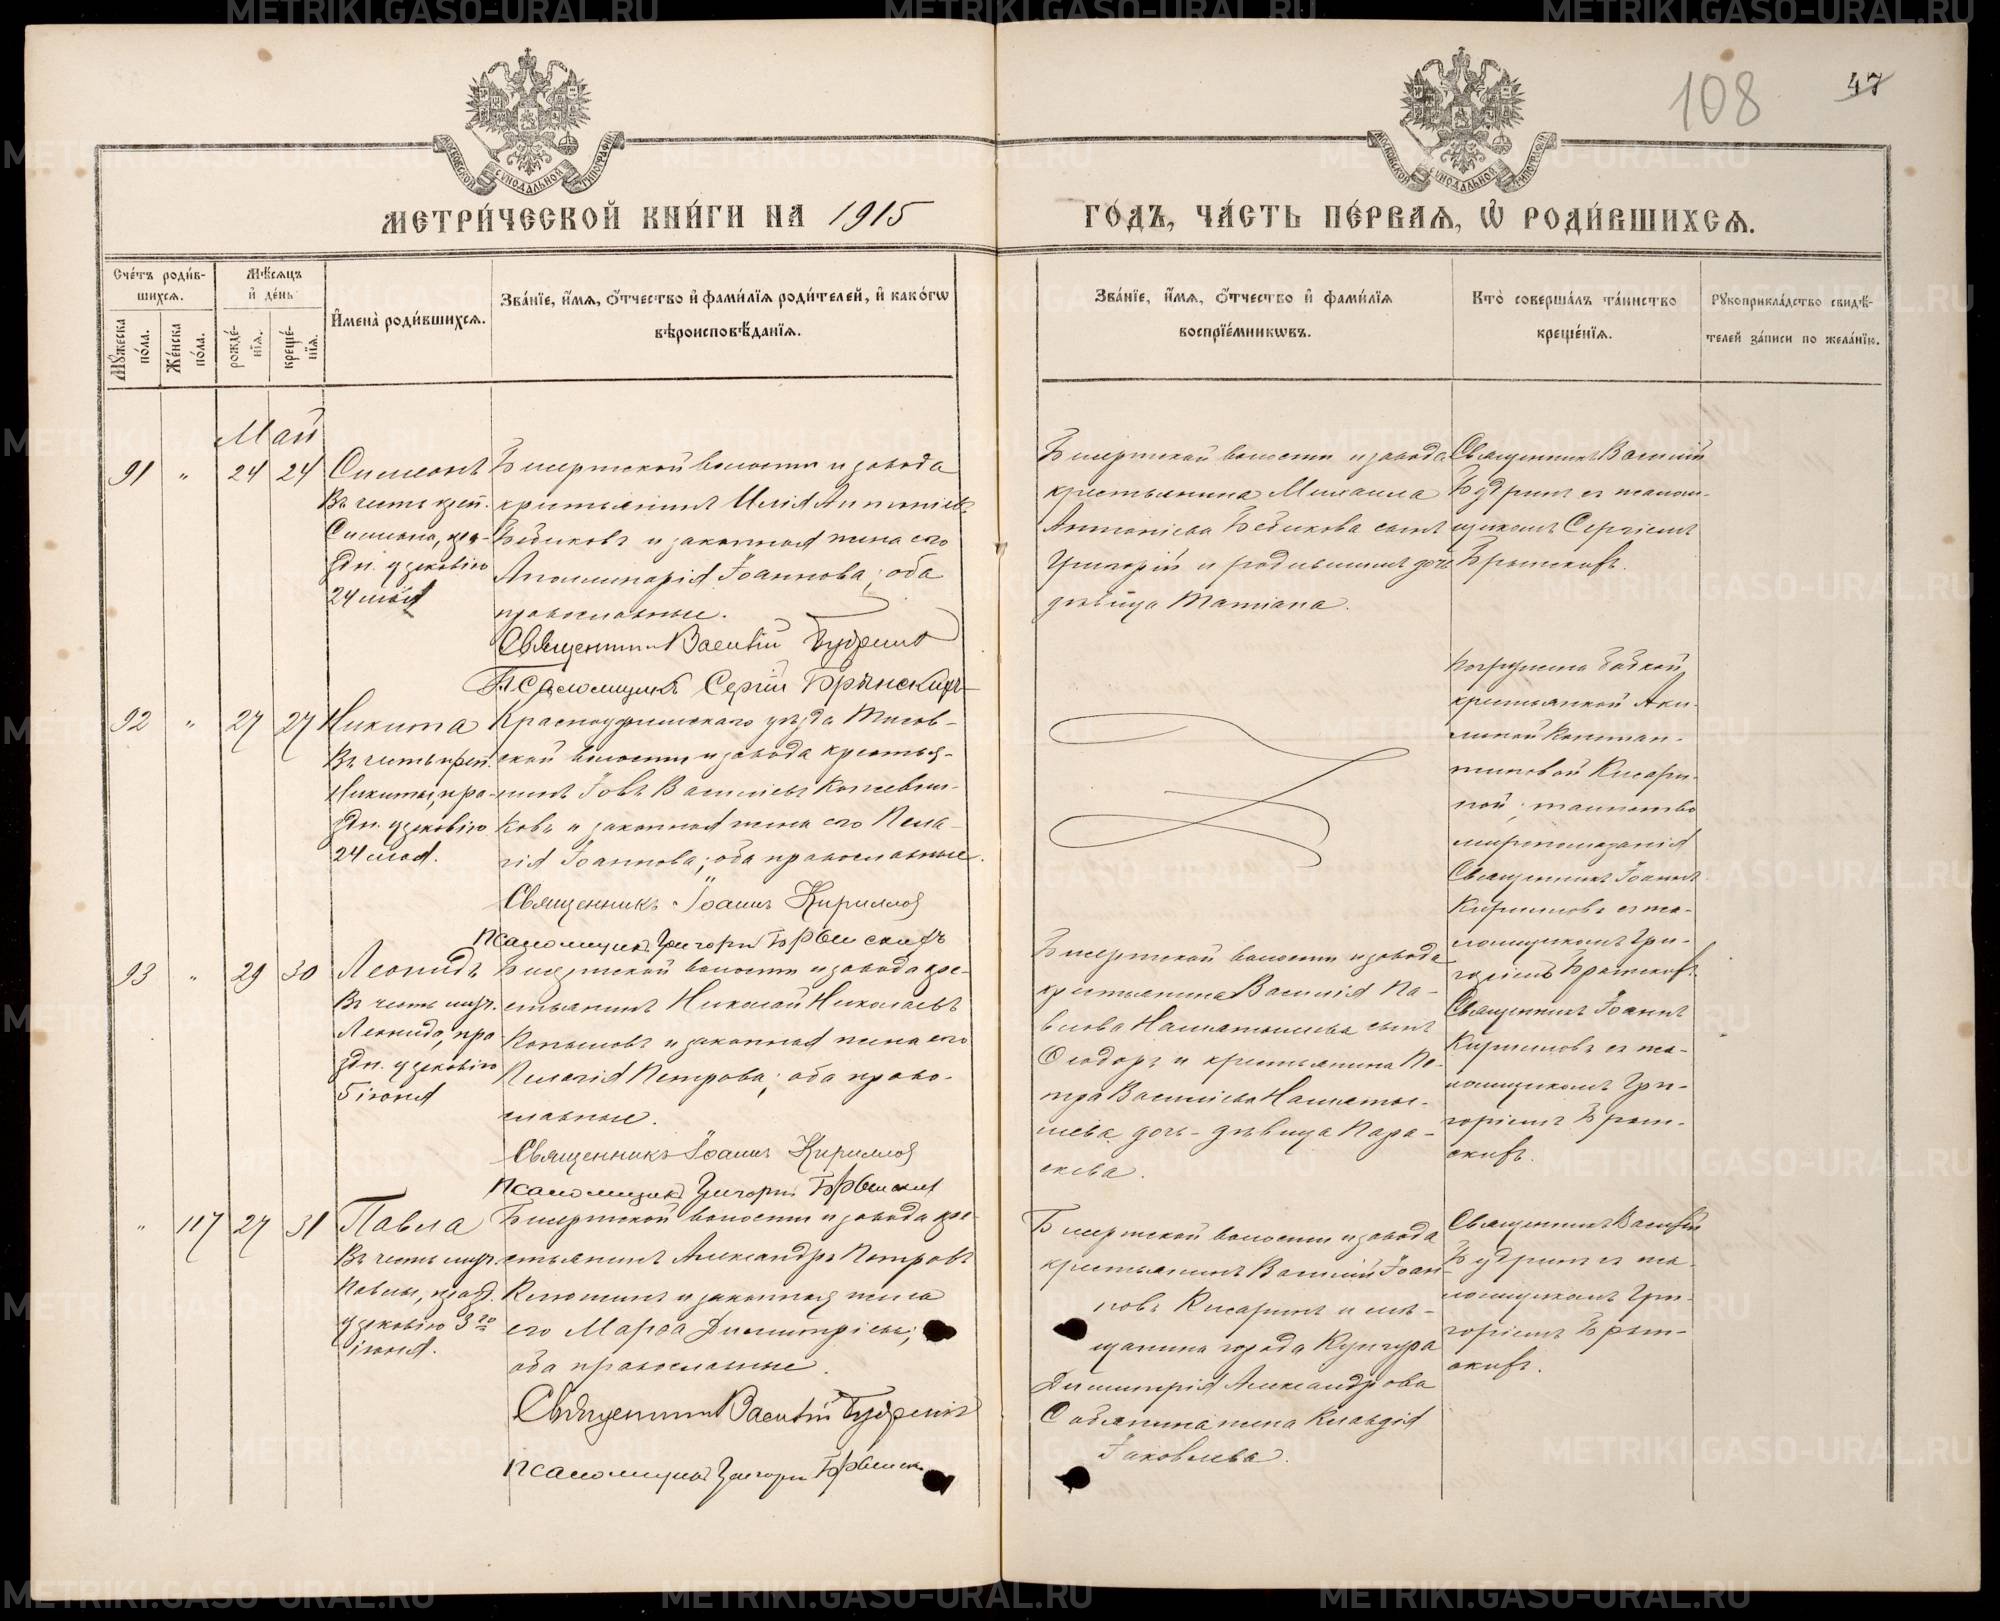 108
47
МОСКОВСКОЙ СѴНОДАЛЬНОЙ ТИПОГРАФІИ
МОСКОВСКОЙ СѴНОДАЛЬНОЙ ТИПОГРАФІИ
МЕТРИ́ЧЕСКОЙ КНИ́ГИ НА 1915
ГО́ДЪ, ЧА́СТЬ ПЕ́РВАѦ, Ѡ҆ РОДИ́ВШИХСѦ.
Сче́тъ роди́в-
шихсѧ.
Мꙋ́жеска по́ла.
Же́нска по́ла.
Мѣ́сѧцъ
и҆ де́нь
рожде́-
нїѧ.
креще́-
нїѧ.
И҆мена̀ роди́вшихсѧ.
Зва́нїе, и҆́мѧ, ѻ҆́тчество и҆ фами́лїѧ роди́телей, и҆ како́гѡ
вѣроисповѣ́данїѧ.
Зва́нїе, и҆́мѧ, ѻ҆́тчество и҆ фами́лїѧ
воспрїе́мникѡвъ.
Кто̀ соверша́лъ та́инство
креще́нїѧ.
Рꙋкоприкла́дство свидѣ́-
телей за́писи по жела́нїю.
Май
91 " 24 24 Симеонъ
Въ честь преп.
Симеона, пра-
здн. церковію
24 мая
Бисертской волости и завода
крестьянинъ Илія Антоніевъ
Бѣдиковъ и законная жена его
Аполлинарія Іоаннова; оба
православные.
Священникъ Василій Будринъ
Псаломщикъ Сергій Брянскихъ
Бисертской волости и завода
крестьянина Михаила
Антоніева Бѣдикова сынъ
Григорій и родившихъ дочь
дѣвица Татіана.
Священникъ Василій
Будринъ съ псалом-
щикомъ Сергіемъ
92 " 27 27 Никита
Въ честь преп.
Никиты, пра-
здн. церковію
24 мая.
Красноуфимскаго уѣзда Тисов-
ской волости и завода крестья-
нинъ Іовъ Васильевъ Кожевни-
ковъ и законная жена его Пела-
гія Іоаннова; оба православные.
Священникъ Іоаннъ Кирилловъ
псаломщикъ Григорій
Погружена бабкой
крестьянкой Аки-
линой Констан-
тиновой Кисари-
ной; таинство
миропомазанія
Священникъ Іоаннъ
Кирилловъ съ пса-
ломщикомъ Гри-
горіемъ
93 " 29 30 Леонидъ
Въ честь муч.
Леонида, пра
здн. церковію
5 іюня
Бисертской волости и завода кре-
стьянинъ Николай Николаевъ
Копыловъ и законная жена его
Пелагія Петрова; оба право-
славные.
Священникъ Іоаннъ Кирилловъ
псаломщикъ Григорій
Бисертской волости и завода
крестьянина Василія Па-
влова сынъ
Ѳеодоръ и крестьянина Пе-
тра Васильева
дочь - дѣвица Пара-
скева.
Священникъ Іоаннъ
Кирилловъ съ пса-
ломщикомъ Гри-
горіемъ
" 117 27 31 Павла
Въ честь муч.
Павлы, празд.
церковію 3го
іюня.
Бисертской волости и завода кре-
стьянинъ Александръ Петровъ
Клюшинъ и законная жена
его Марѳа Димитріева;
оба православные.
Священникъ Василій Будринъ
псаломщикъ Григорій
Бисертской волости и завода
крестьянинъ Василій Іоан-
новъ Кисаринъ и мѣ-
щанина города Кунгура
Димитрія Александрова
жена Клавдія
Іаковлева.
Священникъ Василій
Будринъ съ пса-
ломщикомъ Гри-
горіемъ
METRIKI.GASO-URAL.RU